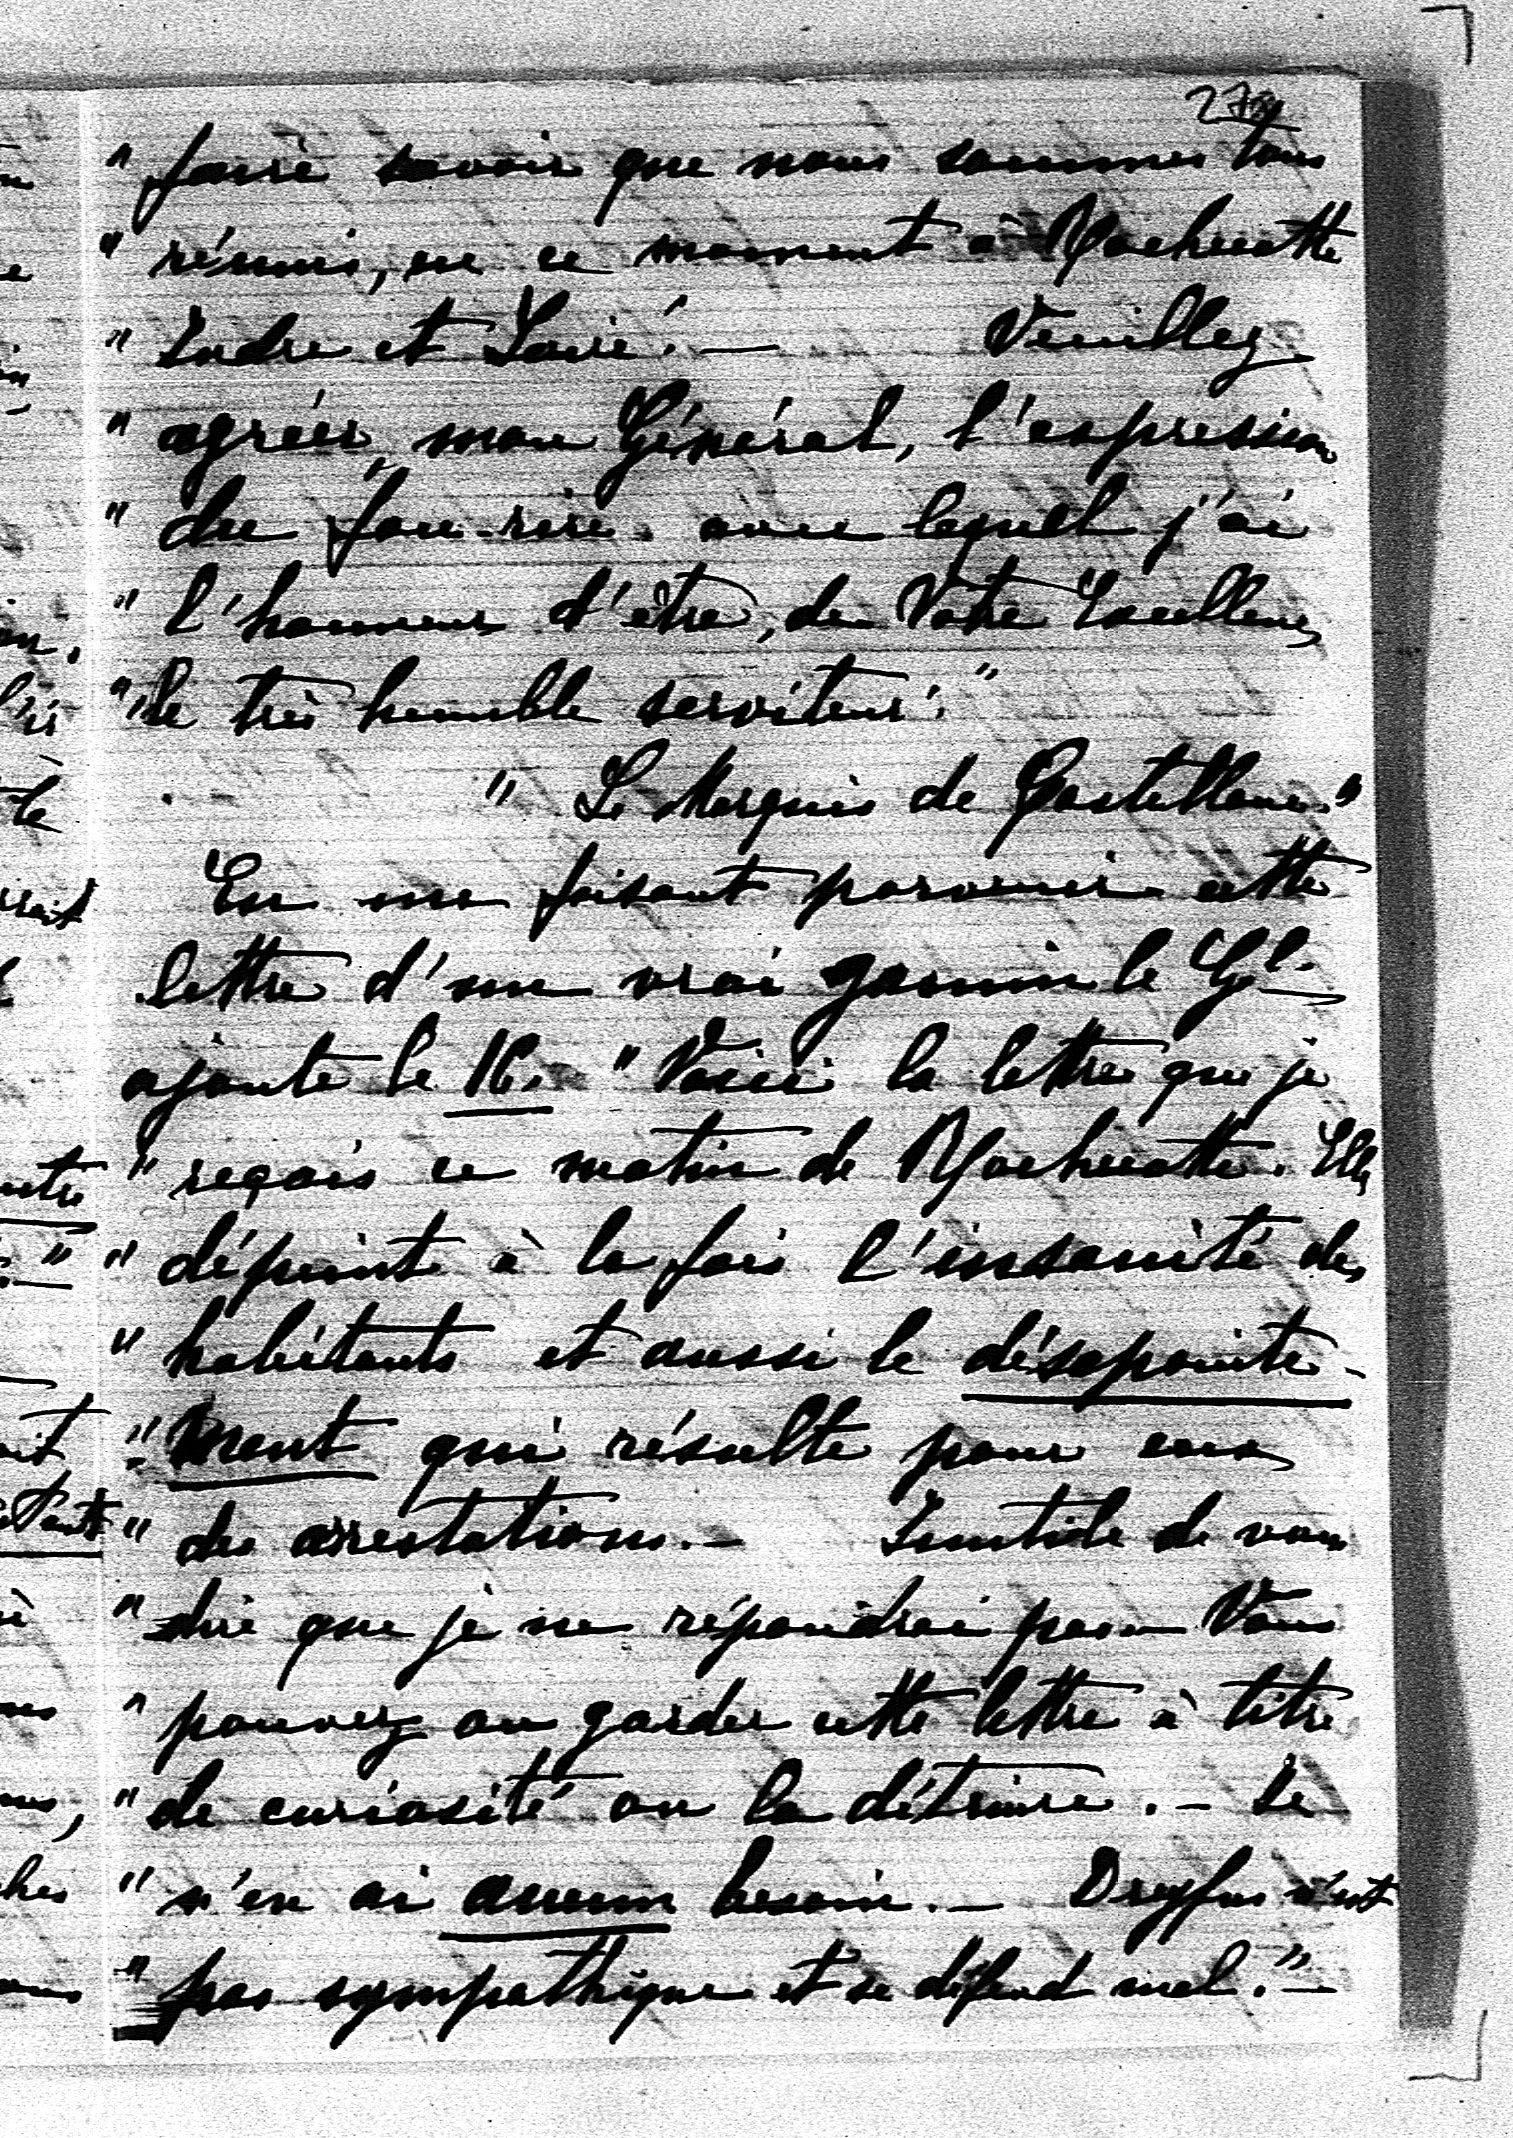 " faire savoir que nous sommes tous
" réunis, en ce moment à Rochecotte
" Indre et Loire. — Veuillez
" agréer, mon Général, l'expression
" du fou-rire avec lequel j'ai
" l'honneur d'être, de Votre Excellence
" le très humble serviteur."
" Le Marquis de Castellane."
En me faisant parvenir cette
lettre d'un vrai gamin le Gl.
ajoute le 16. " Voici la lettre que je
" reçois ce matin de Rochecotte. Elle
" dépeint à la fois l'insanité des
" habitants et aussi le désapointe-
" ment qui résulte pour eux
" des arrestations. — Inutile de vous
" dire que je ne répondrai pas. Vous
" pouvez ou garder cette lettre à titre
" de curiosité ou la détruire. — Je
" n'en ai aucun besoin. — Dreyfus n'est
" pas sympathique et se défend mal." —